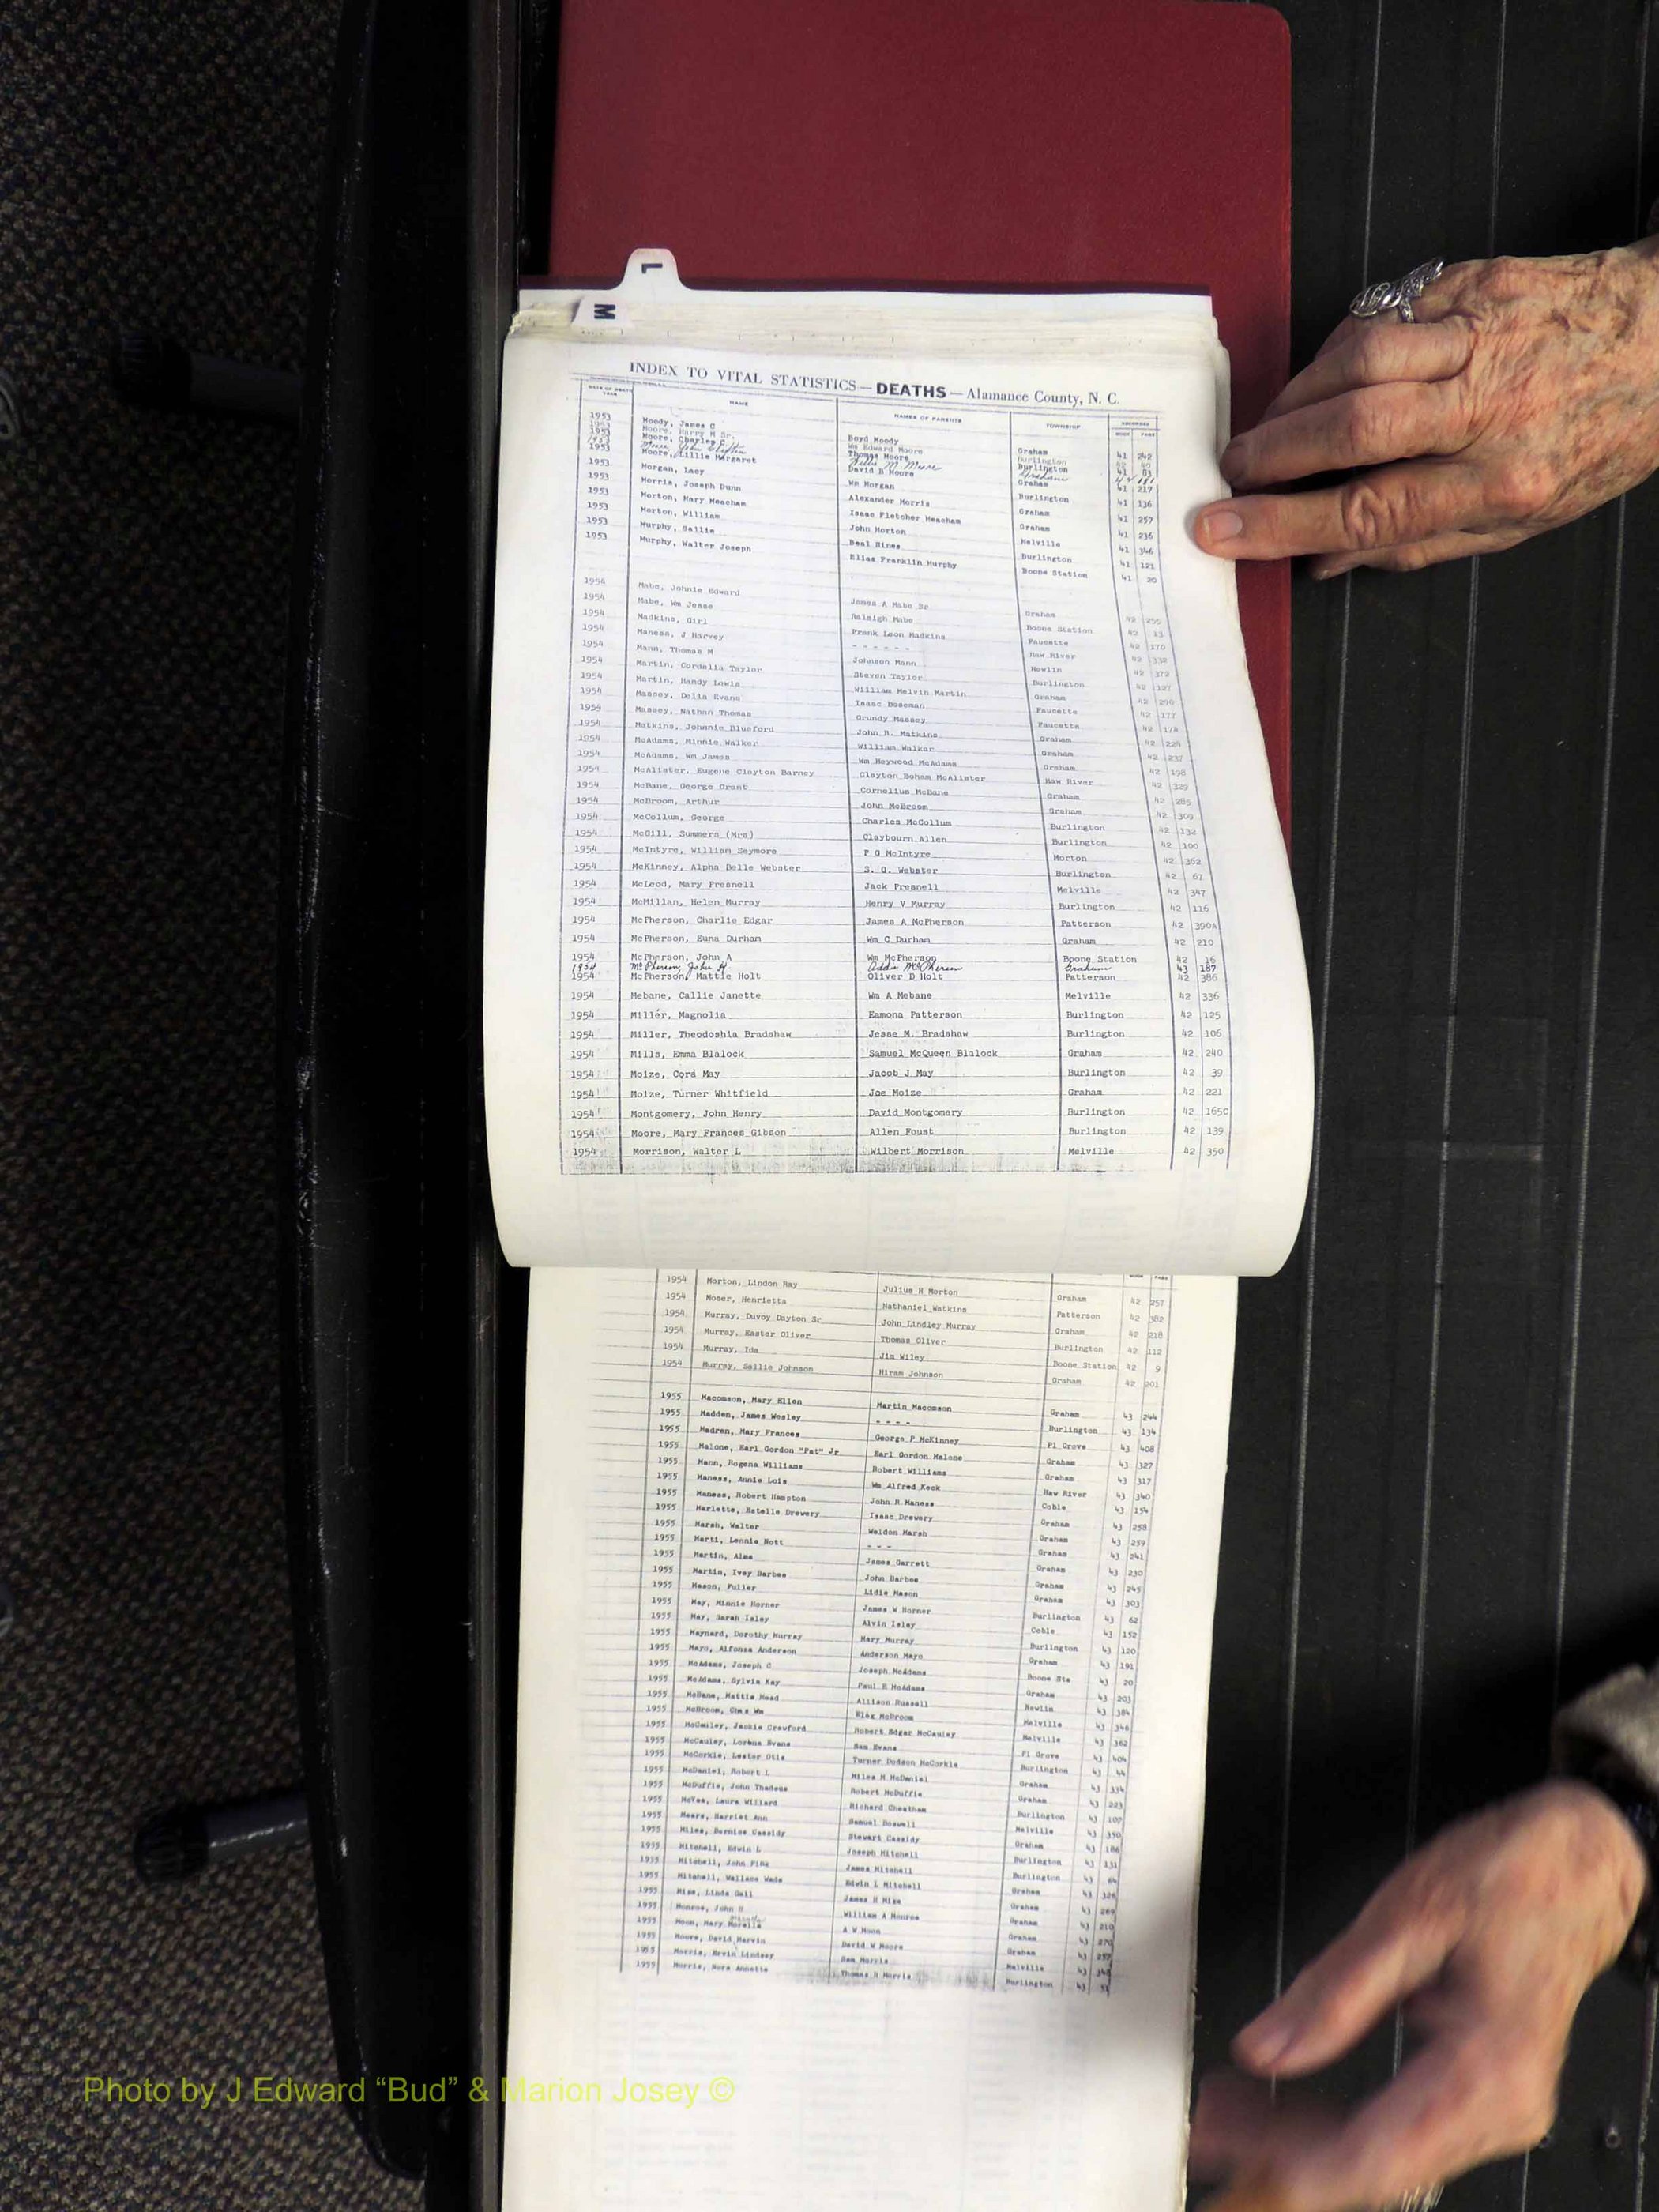 L
M
INDEX TO VITAL STATISTICS — DEATHS — Alamance County, N. C.
NAME NAMES OF PARENTS TOWNSHIP RECORDED
BOOK PAGE
1953 Moody, James C Boyd Moody Graham 41 242
1953 Moore, Harry M Sr. Wm Edward Moore Burlington
1953 Moore, Charles C. Thomas Moore Burlington 41 83
1953 Moore, John M. Moore Graham
1953 Moore, Lillie Margaret David B Moore Graham 41 217
1953 Morgan, Lacy Wm Morgan Burlington 41 136
1953 Morris, Joseph Dunn Alexander Morris Graham 41 257
1953 Morton, Mary Meacham Isaac Fletcher Meacham Graham 41 236
1953 Morton, William John Morton Melville 41 346
1953 Murphy, Sallie Beal Hines Burlington 41 121
1953 Murphy, Walter Joseph Elias Franklin Murphy Boone Station 41 20
1954 Mabe, Johnie Edward James A Mabe Sr Graham 42 255
1954 Mabe, Wm Jesse Raleigh Mabe Boone Station 42 13
1954 Madkins, Girl Frank Leon Madkins Faucette 42 170
1954 Maness, J Harvey - - - - - - Haw River 42 332
1954 Mann, Thomas M Johnson Mann Newlin 42 372
1954 Martin, Cordelia Taylor Steven Taylor Burlington 42 127
1954 Martin, Handy Lewis William Melvin Martin Graham 42 290
1954 Massey, Delia Evans Isaac Boseman Faucette 42 177
1954 Massey, Nathan Thomas Grundy Massey Faucette 42 174
1954 Matkins, Johnnie Blueford John R. Matkins Graham 42 224
1954 McAdams, Minnie Walker William Walker Graham 42 237
1954 McAdams, Wm James Wm Heywood McAdams Graham 42 198
1954 McAlister, Eugene Clayton Barney Clayton Boham McAlister Haw River 42 329
1954 McBane, George Grant Cornelius McBane Graham 42 285
1954 McBroom, Arthur John McBroom Graham 42 309
1954 McCollum, George Charles McCollum Burlington 42 132
1954 McGill, Summers (Mrs) Claybourn Allen Burlington 42 100
1954 McIntyre, William Seymore P G McIntyre Morton 42 362
1954 McKinney, Alpha Belle Webster S. G. Webster Burlington 42 67
1954 McLeod, Mary Presnell Jack Presnell Melville 42 347
1954 McMillan, Helen Murray Henry V Murray Burlington 42 116
1954 McPherson, Charlie Edgar James A McPherson Patterson 42 390A
1954 McPherson, Euna Durham Wm C Durham Graham 42 210
1954 McPherson, John A Wm McPherson Boone Station 42 16
1954 McPherson, John H Addie McPherson Graham 43 187
1954 McPherson, Mattie Holt Oliver D Holt Patterson 42 386
1954 Mebane, Callie Janette Wm A Mebane Melville 42 336
1954 Miller, Magnolia Eamona Patterson Burlington 42 125
1954 Miller, Theodoshia Bradshaw Jesse M. Bradshaw Burlington 42 106
1954 Mills, Emma Blalock Samuel McQueen Blalock Graham 42 240
1954 Moize, Cora May Jacob J May Burlington 42 39
1954 Moize, Turner Whitfield Joe Moize Graham 42 221
1954 Montgomery, John Henry David Montgomery Burlington 42 165C
1954 Moore, Mary Frances Gibson Allen Foust Burlington 42 139
1954 Morrison, Walter L Wilbert Morrison Melville 42 350
1954 Morton, Lindon Ray Julius H Morton Graham 42 257
1954 Moser, Henrietta Nathaniel Watkins Patterson 42 382
1954 Murray, Duvoy Dayton Sr John Lindley Murray Graham 42 218
1954 Murray, Easter Oliver Thomas Oliver Burlington 42 112
1954 Murray, Ida Jim Wiley Boone Station 42 9
1954 Murray, Sallie Johnson Hiram Johnson Graham 42 201
1955 Macomson, Mary Ellen Martin Macomson Graham 43 244
1955 Madden, James Wesley - - - - Burlington 43 134
1955 Madren, Mary Frances George P McKinney Pl Grove 43 408
1955 Malone, Earl Gordon "Pat" Jr Earl Gordon Malone Graham 43 327
1955 Mann, Rogena Williams Robert Williams Graham 43 317
1955 Maness, Annie Lois Wm Alfred Keck Haw River 43 340
1955 Maness, Robert Hampton John R Maness Coble 43 154
1955 Marlette, Estelle Drewery Isaac Drewery Graham 43 258
1955 Marsh, Walter Weldon Marsh Graham 43 259
1955 Marti, Lennie Nott - - - Graham 43 241
1955 Martin, Alma James Garrett Graham 43 230
1955 Martin, Ivey Barbee John Barbee Graham 43 245
1955 Mason, Fuller Lidie Mason Graham 43 303
1955 May, Minnie Horner James W Horner Burlington 43 62
1955 May, Sarah Isley Alvin Isley Coble 43 152
1955 Maynard, Dorothy Murray Mary Murray Burlington 43 120
1955 Mayo, Alfonza Anderson Anderson Mayo Graham 43 191
1955 McAdams, Joseph C Joseph McAdams Boone Sta 43 20
1955 McAdams, Sylvia Kay Paul E McAdams Graham 43 203
1955 McBane, Mattie Mead Allison Russell Newlin 43 384
1955 McBroom, Chas Wm Elax McBroom Melville 43 346
1955 McCauley, Jackie Crawford Robert Edgar McCauley Melville 43 362
1955 McCauley, Lorena Evans Sam Evans Pl Grove 43 404
1955 McCorkle, Lester Otis Turner Dodson McCorkle Burlington 43 44
1955 McDaniel, Robert L Miles M McDaniel Graham 43 334
1955 McDuffie, John Thadeus Robert McDuffie Graham 43 223
1955 McVea, Laura Willard Richard Cheatham Burlington 43 107
1955 Mears, Harriet Ann Samuel Boswell Melville 43 350
1955 Miles, Bernice Cassidy Stewart Cassidy Graham 43 186
1955 Mitchell, Edwin L Joseph Mitchell Burlington 43 131
1955 Mitchell, John Pink James Mitchell Burlington 43 64
1955 Mitchell, Wallace Wade Edwin L Mitchell Graham 43 326
1955 Mize, Linda Gail James H Mize Graham 43 269
1955 Monroe, John H William A Monroe Graham 43 210
1955 Moon, Mary Morella A W Moon Graham 43 270
1955 Moore, David Marvin David W Moore Graham 43 257
1955 Morris, Kevin Lindsey Sam Morris Melville 43
1955 Morris, Nora Annette Thomas N Morris Burlington 43
Photo by J Edward “Bud” & Marion Josey ©